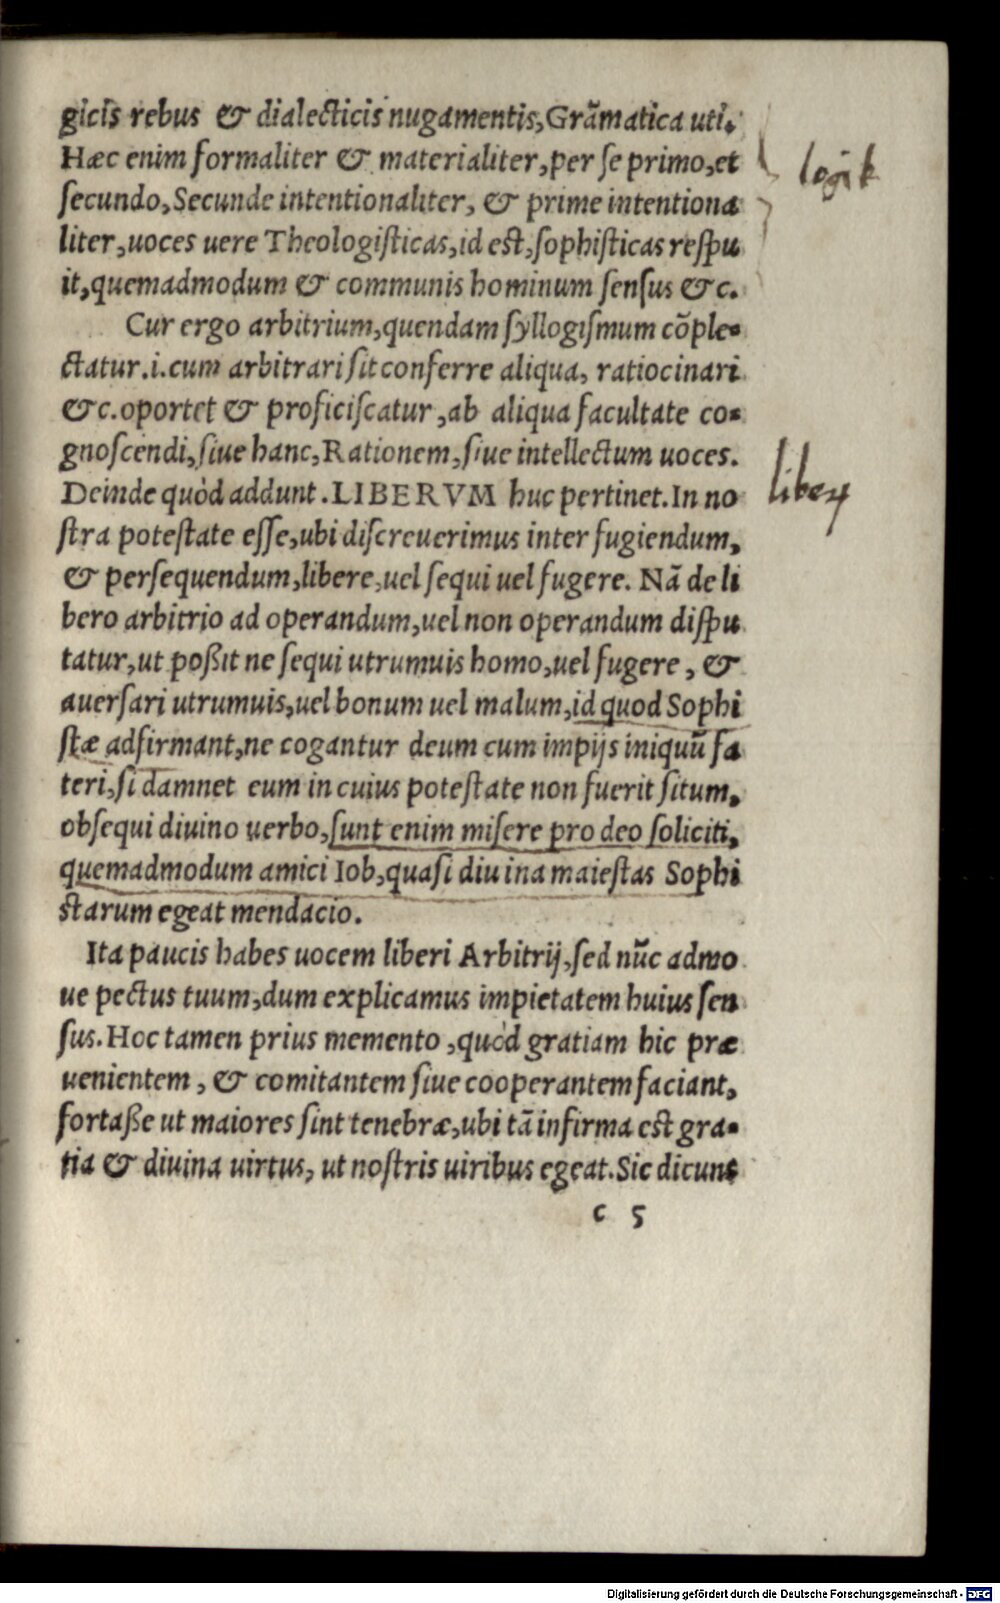 gicis rebus & dialecticis nugamentis, Grãmatica uti.
Hæc enim formaliter & materialiter, per ſe primo, et
logik
ſecundo, Secunde intentionaliter, & prime intentiona
liter, uoces uere Theologiſticas, id eſt, ſophiſticas reſpu
it, quemadmodum & communis hominum ſenſus &c.
Cur ergo arbitrium, quendam ſyllogiſmum cõple-
ctatur .i. cum arbitrari ſit conferre aliqua, ratiocinari
&c. oportet & proficiſcatur, ab aliqua facultate co-
gnoſcendi, ſiue hanc, Rationem, ſiue intellectum uoces.
Deinde quòd addunt. LIBERVM huc pertinet. In no
liber
ſtra poteſtate eſſe, ubi diſcreuerimus inter fugiendum,
& perſequendum, libere, uel ſequi uel fugere. Nã de li
bero arbitrio ad operandum, uel non operandum diſpu
tatur, ut poßit ne ſequi utrumuis homo, uel fugere, &
auerſari utrumuis, uel bonum uel malum, id quod Sophi
ſtæ adfirmant, ne cogantur deum cum impijs iniquũ fa
teri, ſi damnet eum in cuius poteſtate non fuerit ſitum,
obſequi diuino uerbo, ſunt enim miſere pro deo ſoliciti,
quemadmodum amici Iob, quaſi diuina maieſtas Sophi
ſtarum egeat mendacio.
Ita paucis habes uocem liberi Arbitrij, ſed nũc admo
ue pectus tuum, dum explicamus impietatem huius ſen
ſus. Hoc tamen prius memento, quòd gratiam hic præ
uenientem, & comitantem ſiue cooperantem faciant,
fortaße ut maiores ſint tenebræ, ubi tã infirma eſt gra-
tia & diuina uirtus, ut noſtris uiribus egeat. Sic dicunt
c 5
Digitalisierung gefördert durch die Deutsche Forschungsgemeinschaft - DFG